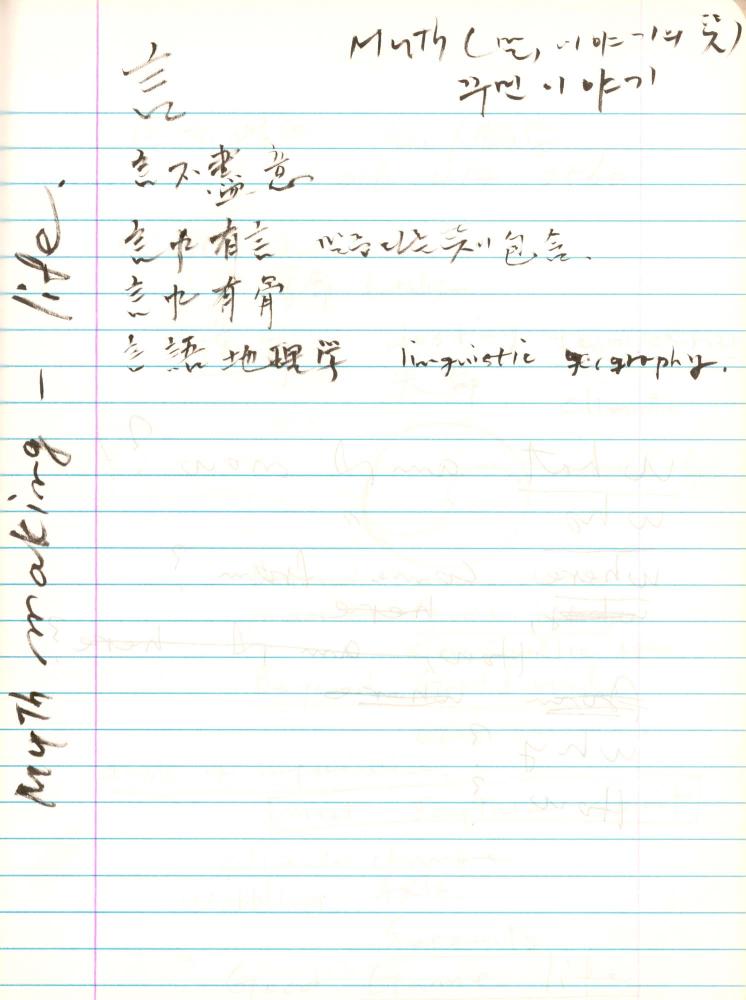 Myth (말, 이야기의 뜻)
꾸민 이야기
言
言不盡意
言中有言 말속 다른 뜻이 包含.
言中有骨
言語地理学 linguistic geography.
Myth making - life.